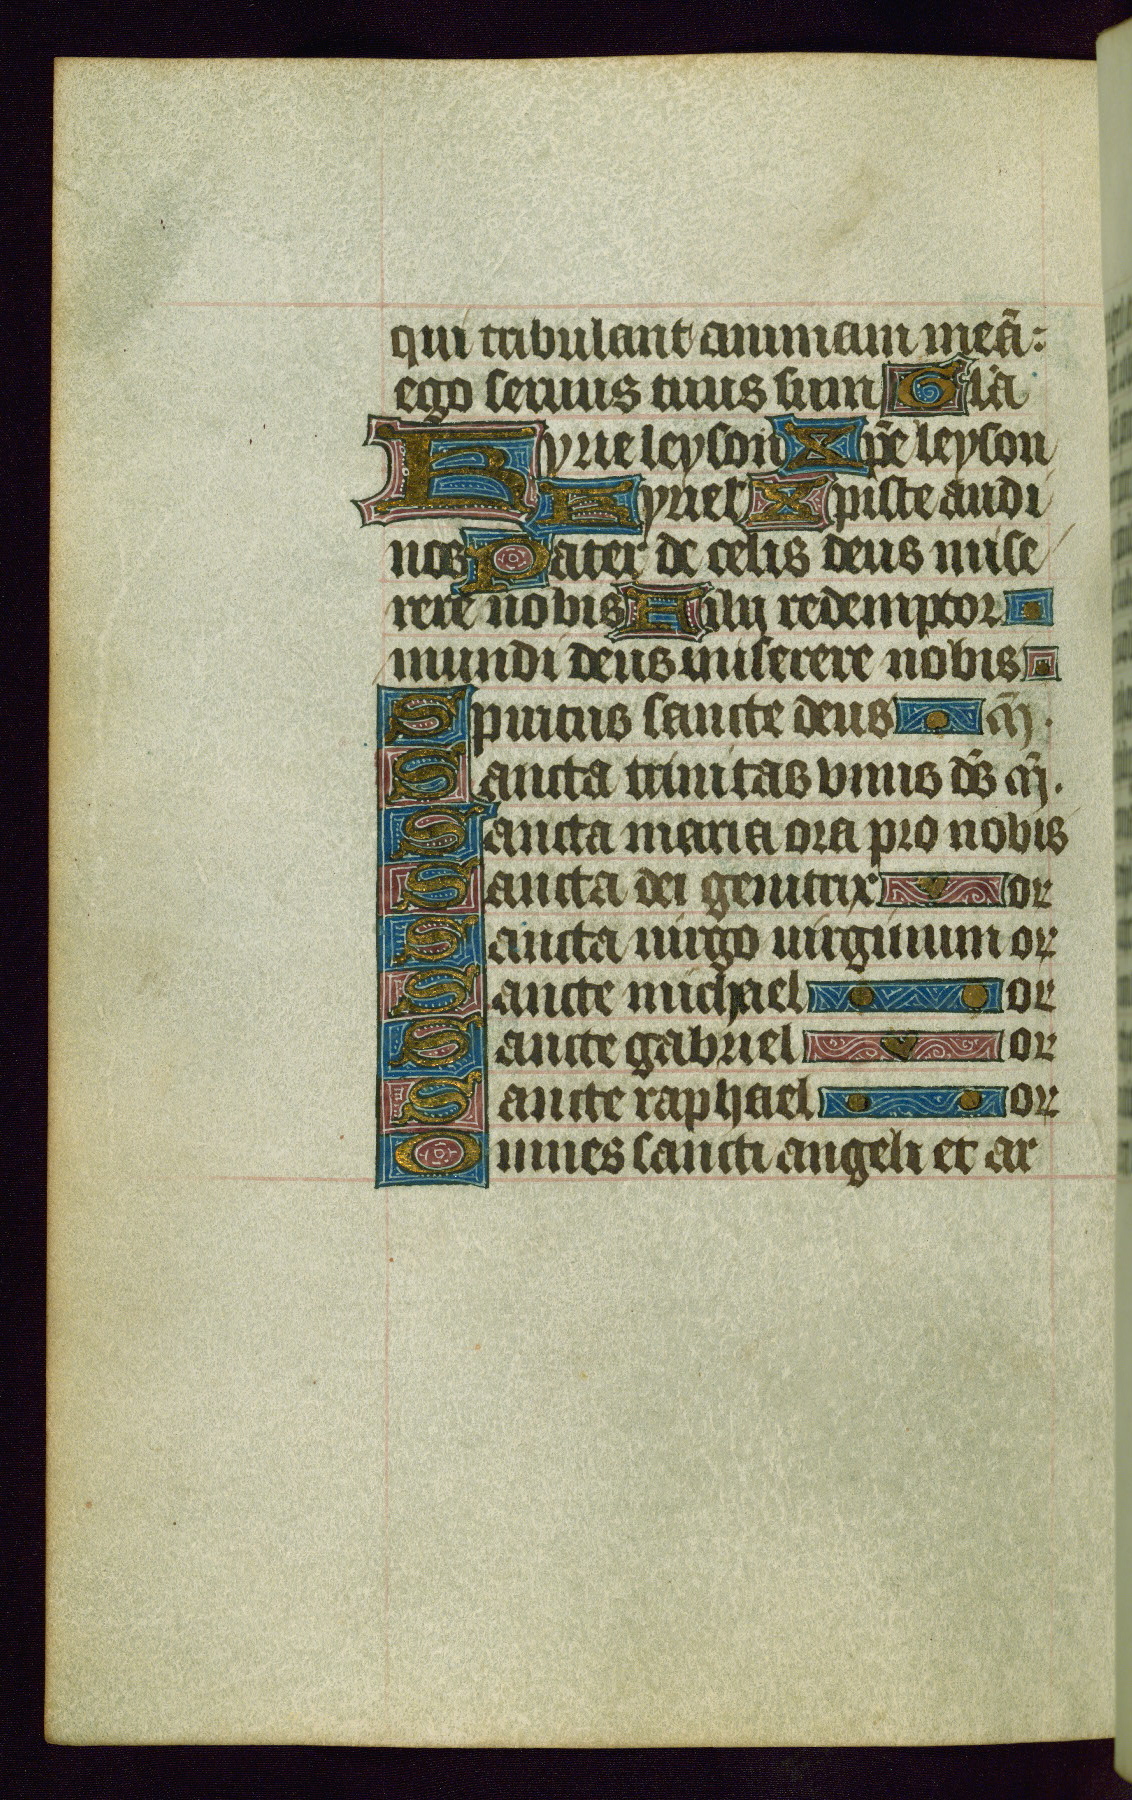 qui tribulant animam meā:
ego seruus tuus sum Gl'a
Kyrie leyson Xpē leyson
Kyriel' Xpiste audi
nos Pater de celis deus mise
rere nobis Filij redemptor
mundi deus miserere nobis
Spiritus sancte deus m̄.
Sancta trinitas vnus ds̄ m̄.
Sancta maria ora pro nobis
Sancta dei genitrix or
Sancta uirgo uirginum or
Sancte michael or
Sancte gabriel or
Sancte raphael or
Omnes sancti angeli et ar